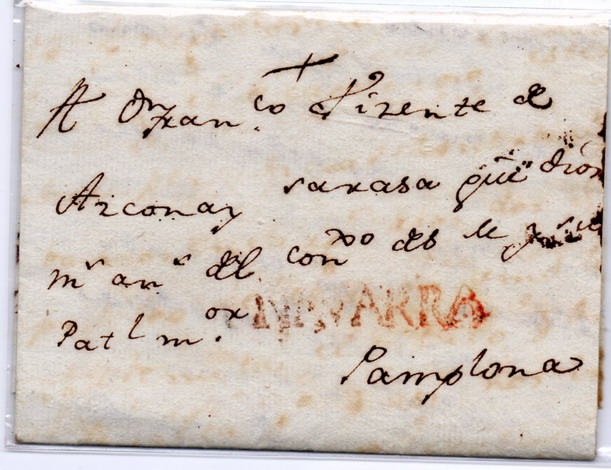 A Dn Franco Vizente de
Azcona y Sarasa que Dios
ms ans del Conxo de
NAVARRA
Patl mor
Pamplona